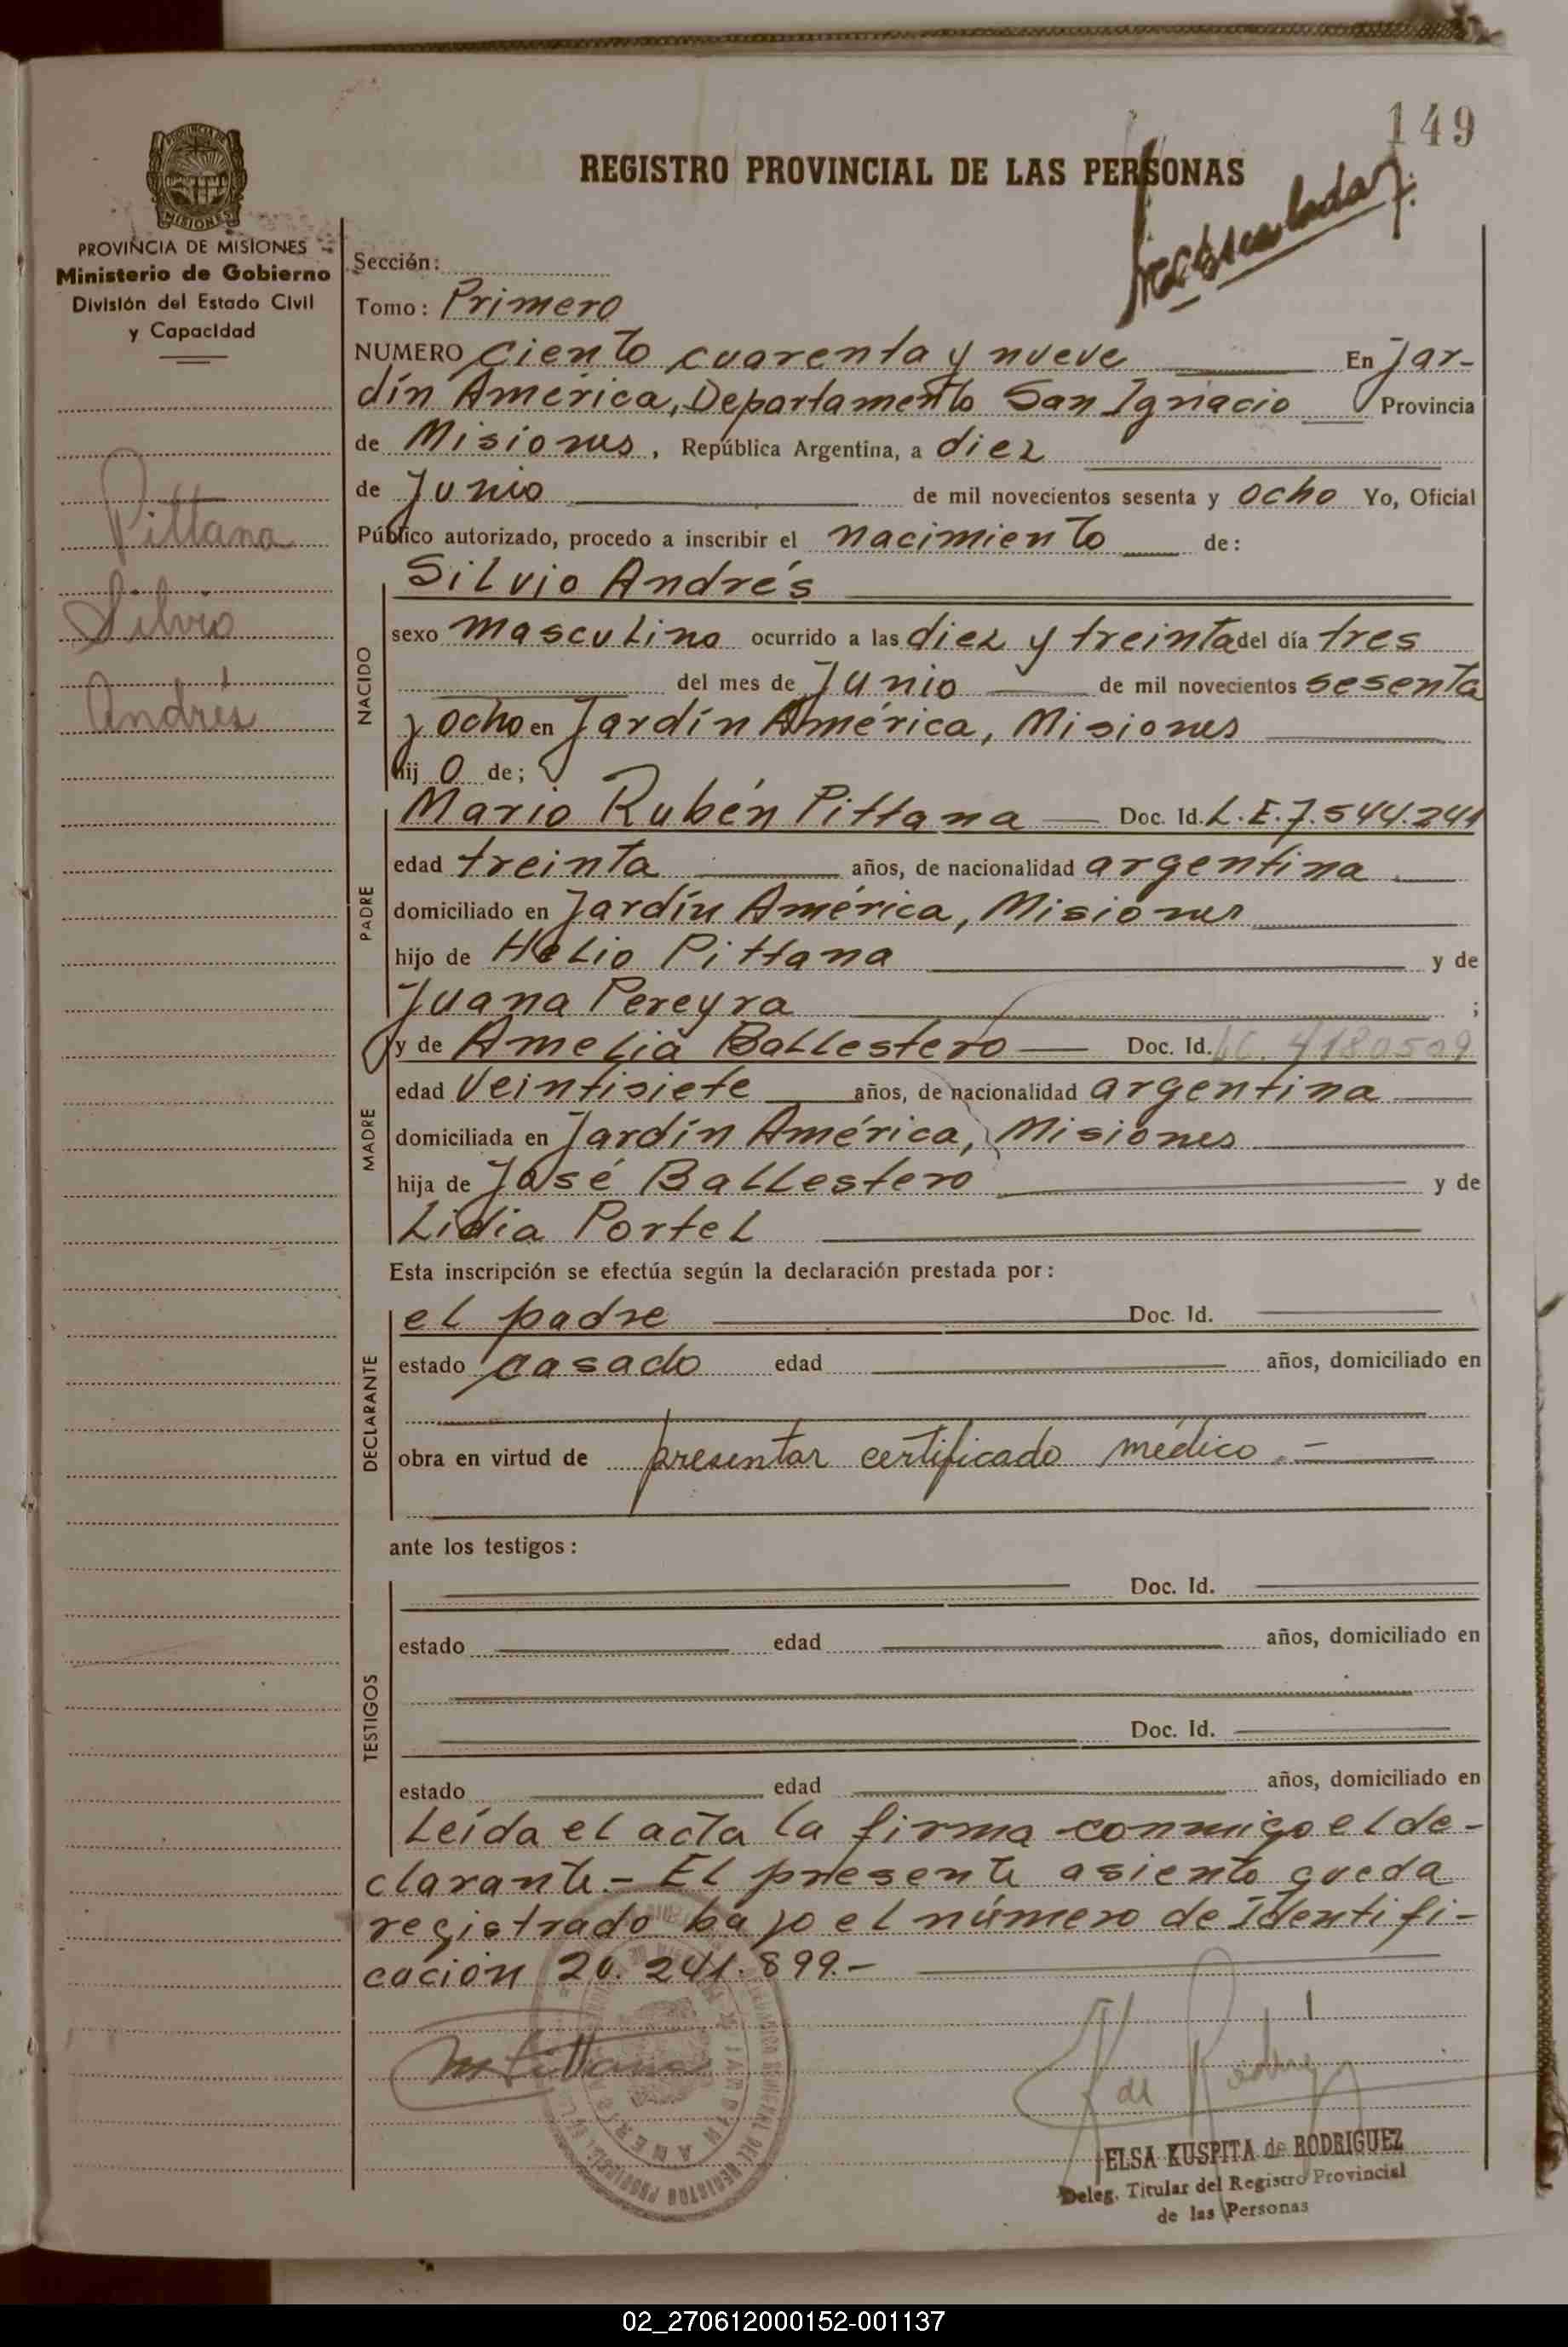 149
REGISTRO PROVINCIAL DE LAS PERSONAS
PROVINCIA DE MISIONES
Ministerio de Gobierno
División del Estado Civil
y Capacidad
Sección:
Tomo: Primero
NUMERO ciento cuarenta y nueve En Jar-
dín América, Departamento San Ignacio Provincia
de Misiones, República Argentina, a diez
de Junio de mil novecientos sesenta y ocho Yo, Oficial
Público autorizado, procedo a inscribir el nacimiento de:
Pittana
Silvio
Andrés
NACIDO
Silvio Andrés
sexo masculino ocurrido a las diez y treinta del día tres
del mes de Junio de mil novecientos sesenta
y ocho en Jardín América, Misiones
hij o de;
PADRE
Mario Rubén Pittana Doc. Id. L.E.7.544.241
edad treinta años, de nacionalidad argentina
domiciliado en Jardín América, Misiones
hijo de Helio Pittana y de
Juana Pereyra ;
MADRE
y de Amelia Ballestero Doc. Id. LC. 4180509
edad veintisiete años, de nacionalidad argentina
domiciliada en Jardín América, Misiones
hija de José Ballestero y de
Lidia Portel
Esta inscripción se efectúa según la declaración prestada por:
DECLARANTE
el padre Doc. Id.
estado casado edad años, domiciliado en
obra en virtud de presentar certificado médico.-
ante los testigos:
TESTIGOS
Doc. Id.
estado edad años, domiciliado en
Doc. Id.
estado edad años, domiciliado en
Leída el acta la firma conmigo el de-
clarante.- El presente asiento queda
registrado bajo el número de Identifi-
cación 20.241.899.-
M Pittana
ELSA KUSPITA de RODRIGUEZ
Deleg. Titular del Registro Provincial
de las Personas
02_270612000152-001137